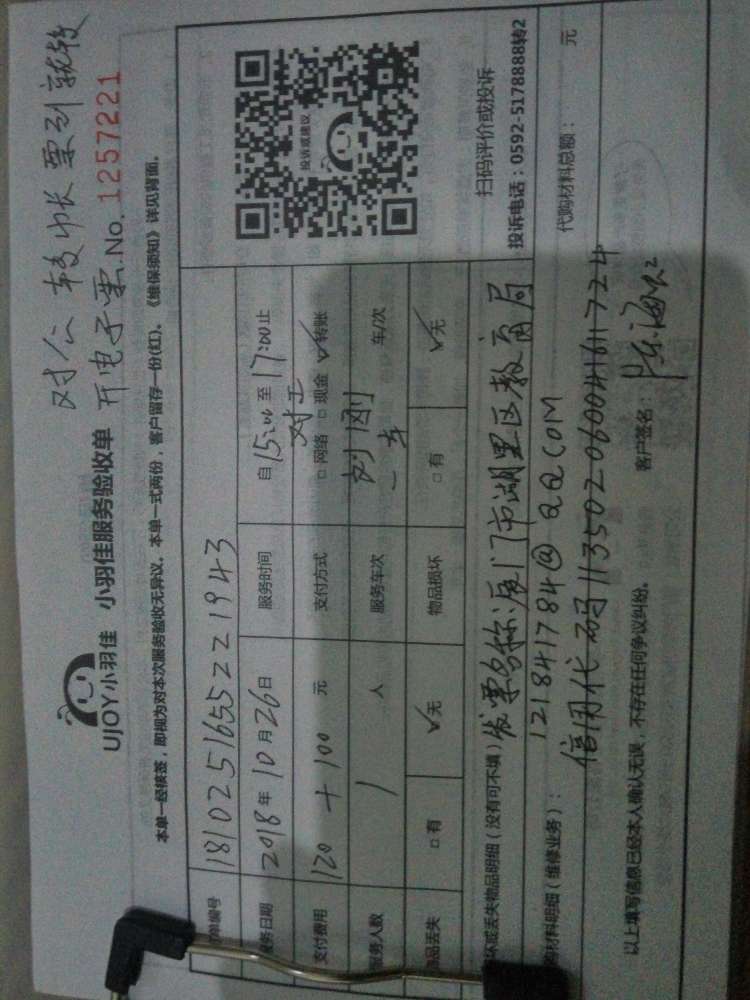 对公转帐票到就转
开电子票.No.1257221
UJOY小羽佳 小羽佳服务验收单
本单一经核签，即视为对本次服务验收无异议。本单一式两份，客户留存一份(红)。《维保须知》详见背面。
单编号 181025165522 1943
服务日期 2018年10月26日 服务时间 自15:00至17:00止
支付费用 120+100 元 支付方式 对公 □网络 □现金 ☑转账
服务人数 1 人 服务车次 刘刚 一车 车/次
物品丢失 □有 ☑无 物品损坏 □有 ☑无
投诉或建议
扫码评价或投诉
投诉电话：0592-5178888转2
坏或丢失物品明细（没有可不填）发票名称：厦门市湖里区教育局
121841784@QQ.COM
购材料明细（维修业务）： 代购材料总额： 元
信用代码113502060041611724
以上填写信息已经本人确认无误，不存在任何争议纠纷。 客户签名：